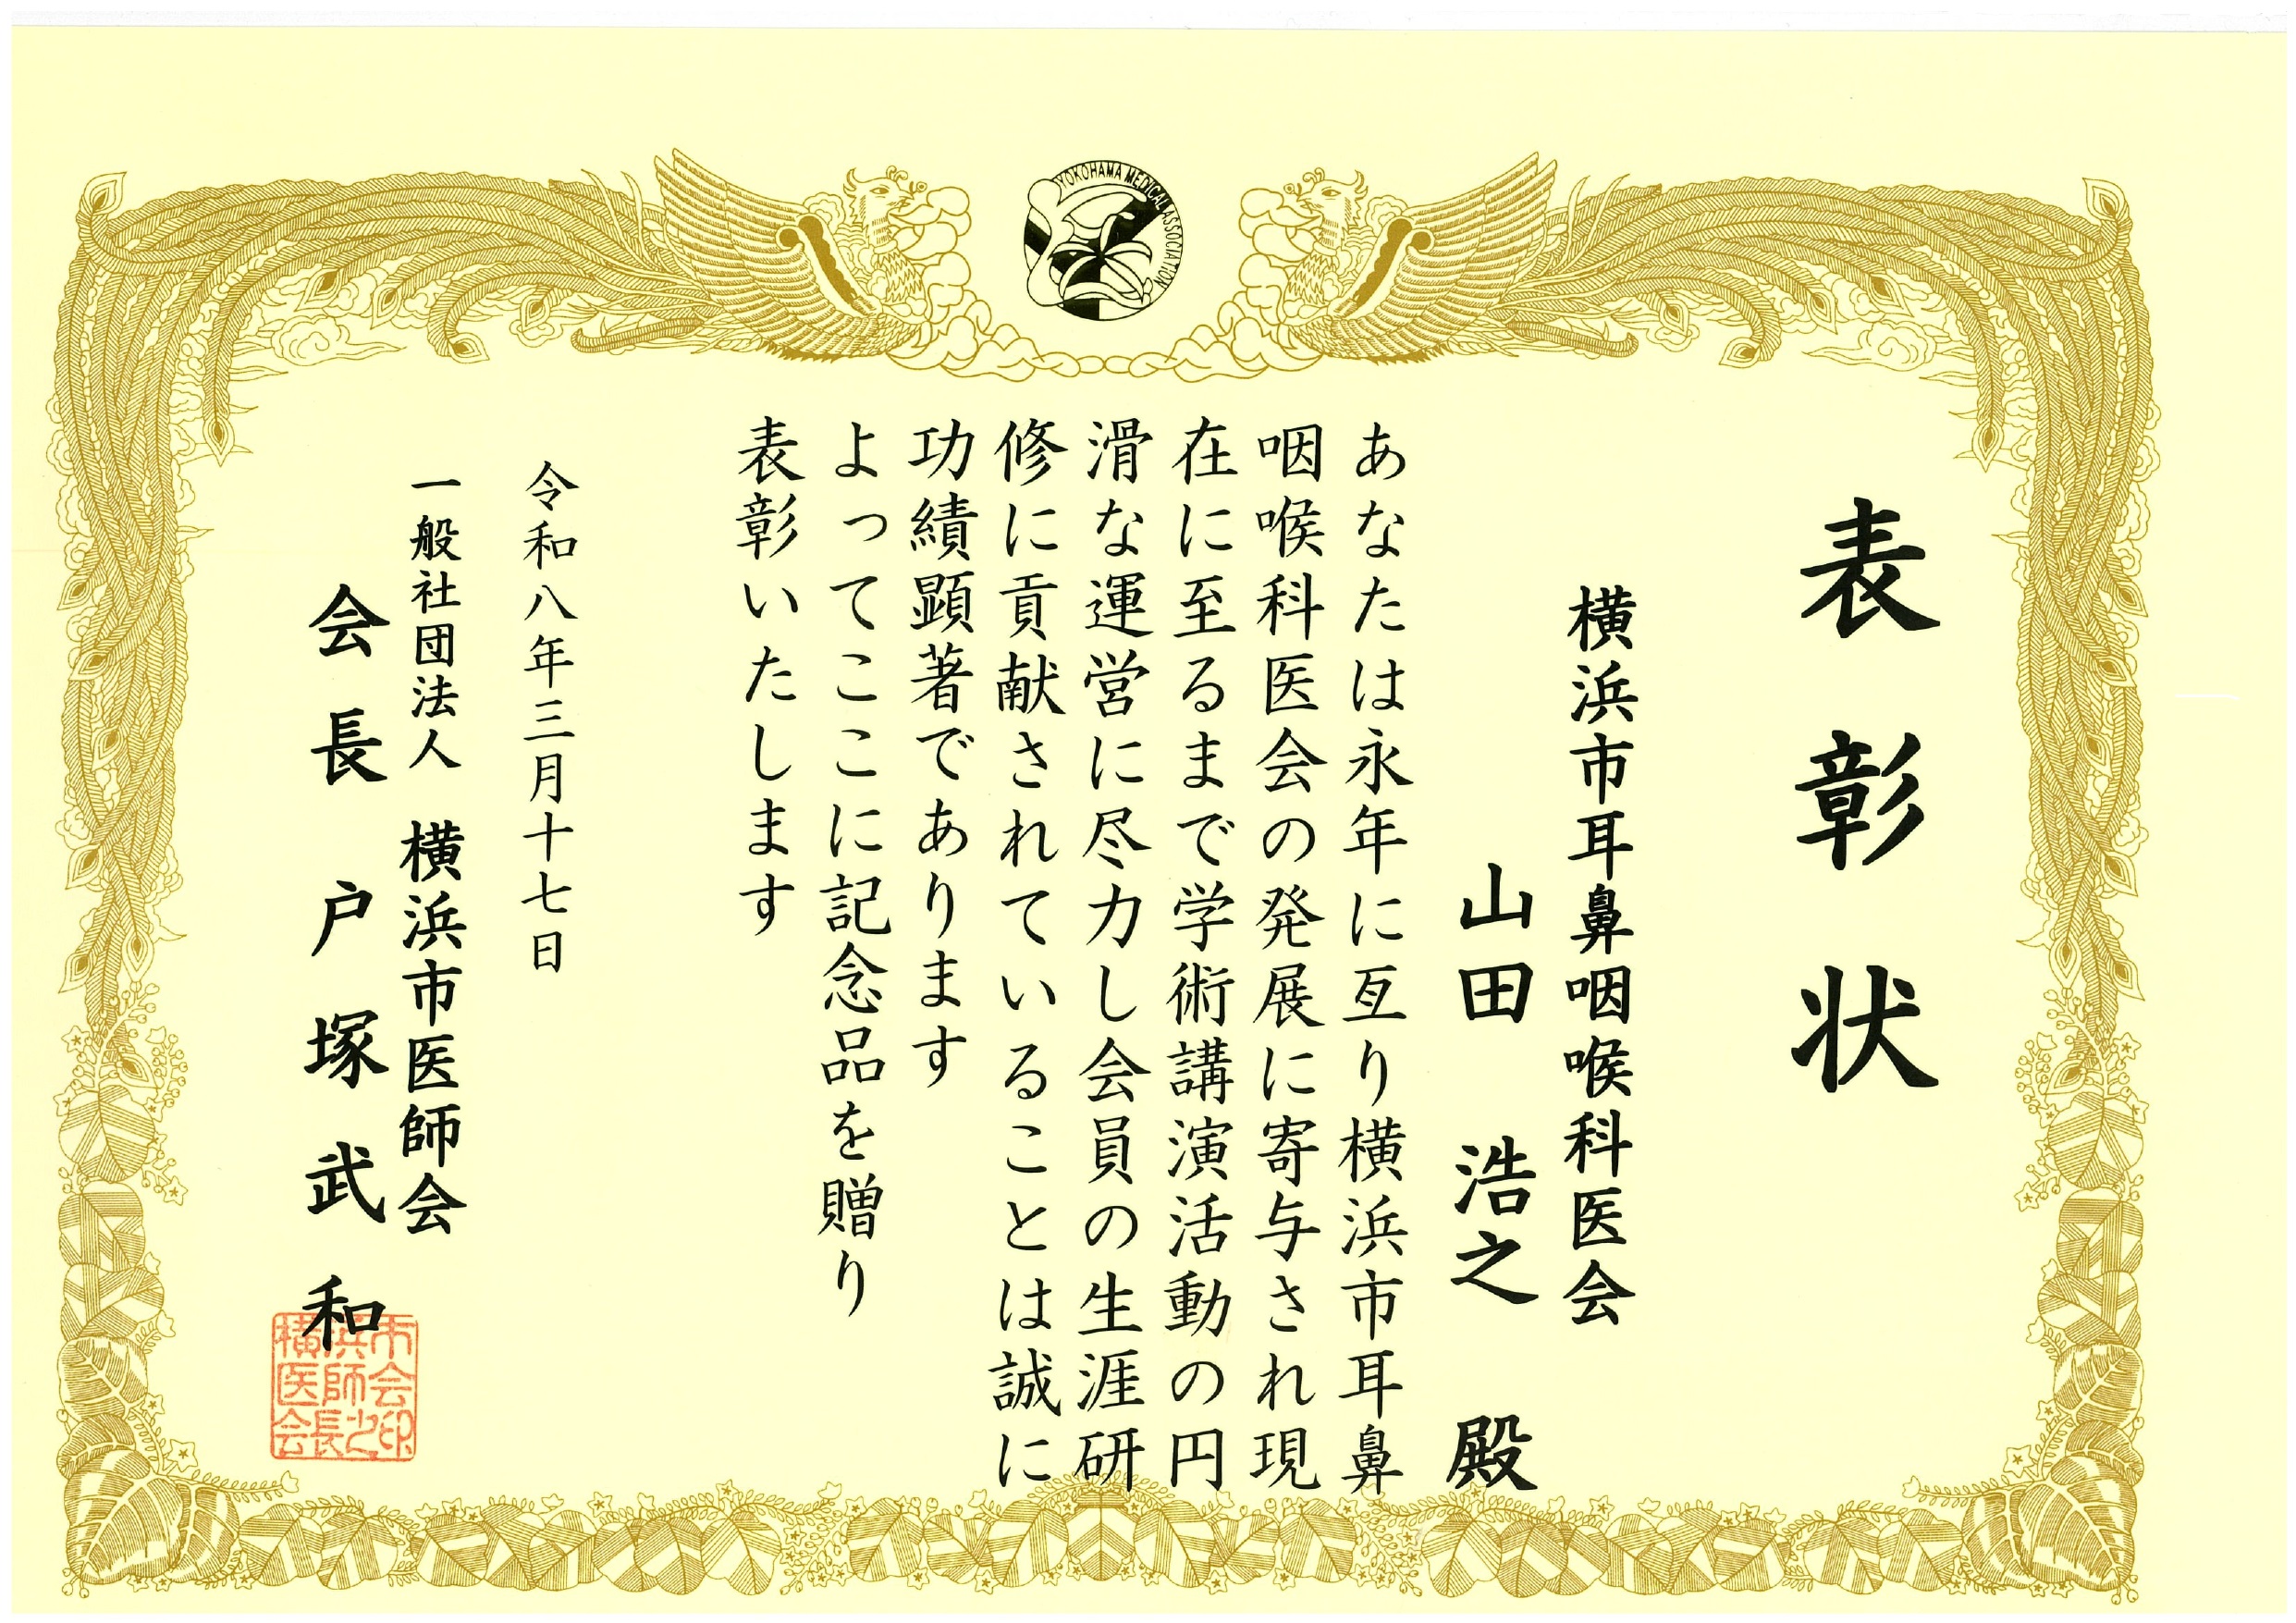 YOKOHAMA MEDICAL ASSOCIATION
表彰状
横浜市耳鼻咽喉科医会
山田 浩之 殿
あなたは永年に亙り横浜市耳鼻
咽喉科医会の発展に寄与され現
在に至るまで学術講演活動の円
滑な運営に尽力し会員の生涯研
修に貢献されていることは誠に
功績顕著であります
よってここに記念品を贈り
表彰いたします
令和八年三月十七日
一般社団法人 横浜市医師会
会長 戸塚武和
横浜市
医師会
会長之印